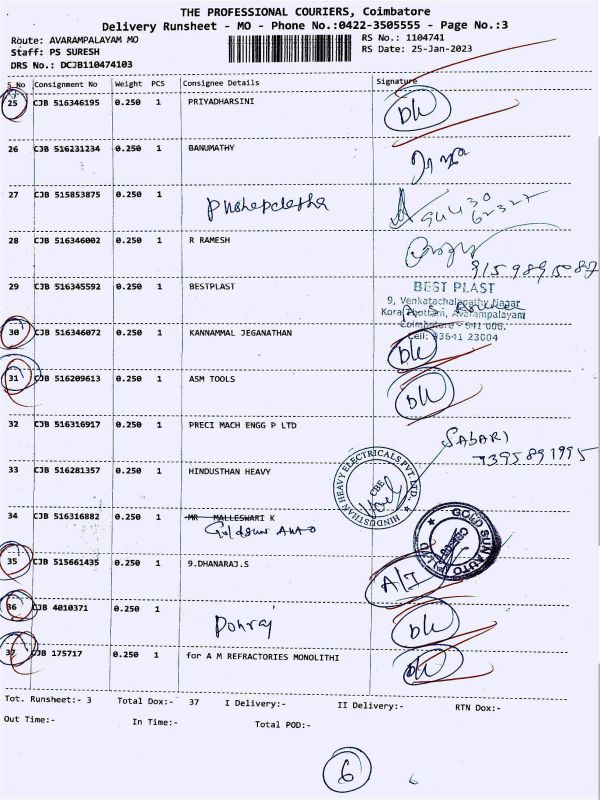 THE PROFESSIONAL COURIERS, Coimbatore
Delivery Runsheet - MO - Phone No.:0422-3505555 - Page No.:3
Route: AVARAMPALAYAM MO
RS No.: 1104741
Staff: PS SURESH
RS Date: 25-Jan-2023
DRS No.: DCJB110474103
S.No Consignment No Weight PCS Consignee Details Signature
25 CJB 516346195 0.250 1 PRIYADHARSINI
26 CJB 516231234 0.250 1 BANUMATHY
27 CJB 515853875 0.250 1
28 CJB 516346002 0.250 1 R RAMESH
29 CJB 516345592 0.250 1 BESTPLAST
BEST PLAST
9, Venkatachalapathy Nagar
Avarampalayam
Coimbatore - 641 006.
Cell: 93641 23004
30 CJB 516346072 0.250 1 KANNAMMAL JEGANATHAN
31 CJB 516209613 0.250 1 ASM TOOLS
32 CJB 516316917 0.250 1 PRECI MACH ENGG P LTD
SABARI
33 CJB 516281357 0.250 1 HINDUSTHAN HEAVY
HINDUSTHAN HEAVY ELECTRICALS PVT. LTD.
CBE
34 CJB 516316882 0.250 1 MR MALLESWARI K
Goldsun Auto
GOLD SUN AUTO
35 CJB 515661435 0.250 1 9.DHANARAJ.S
A/I
36 CJB 4010371 0.250 1
37 CJB 175717 0.250 1 for A M REFRACTORIES MONOLITHI
Tot. Runsheet:- 3 Total Dox:- 37 I Delivery:- II Delivery:- RTN Dox:-
Out Time:- In Time:- Total POD:-
6